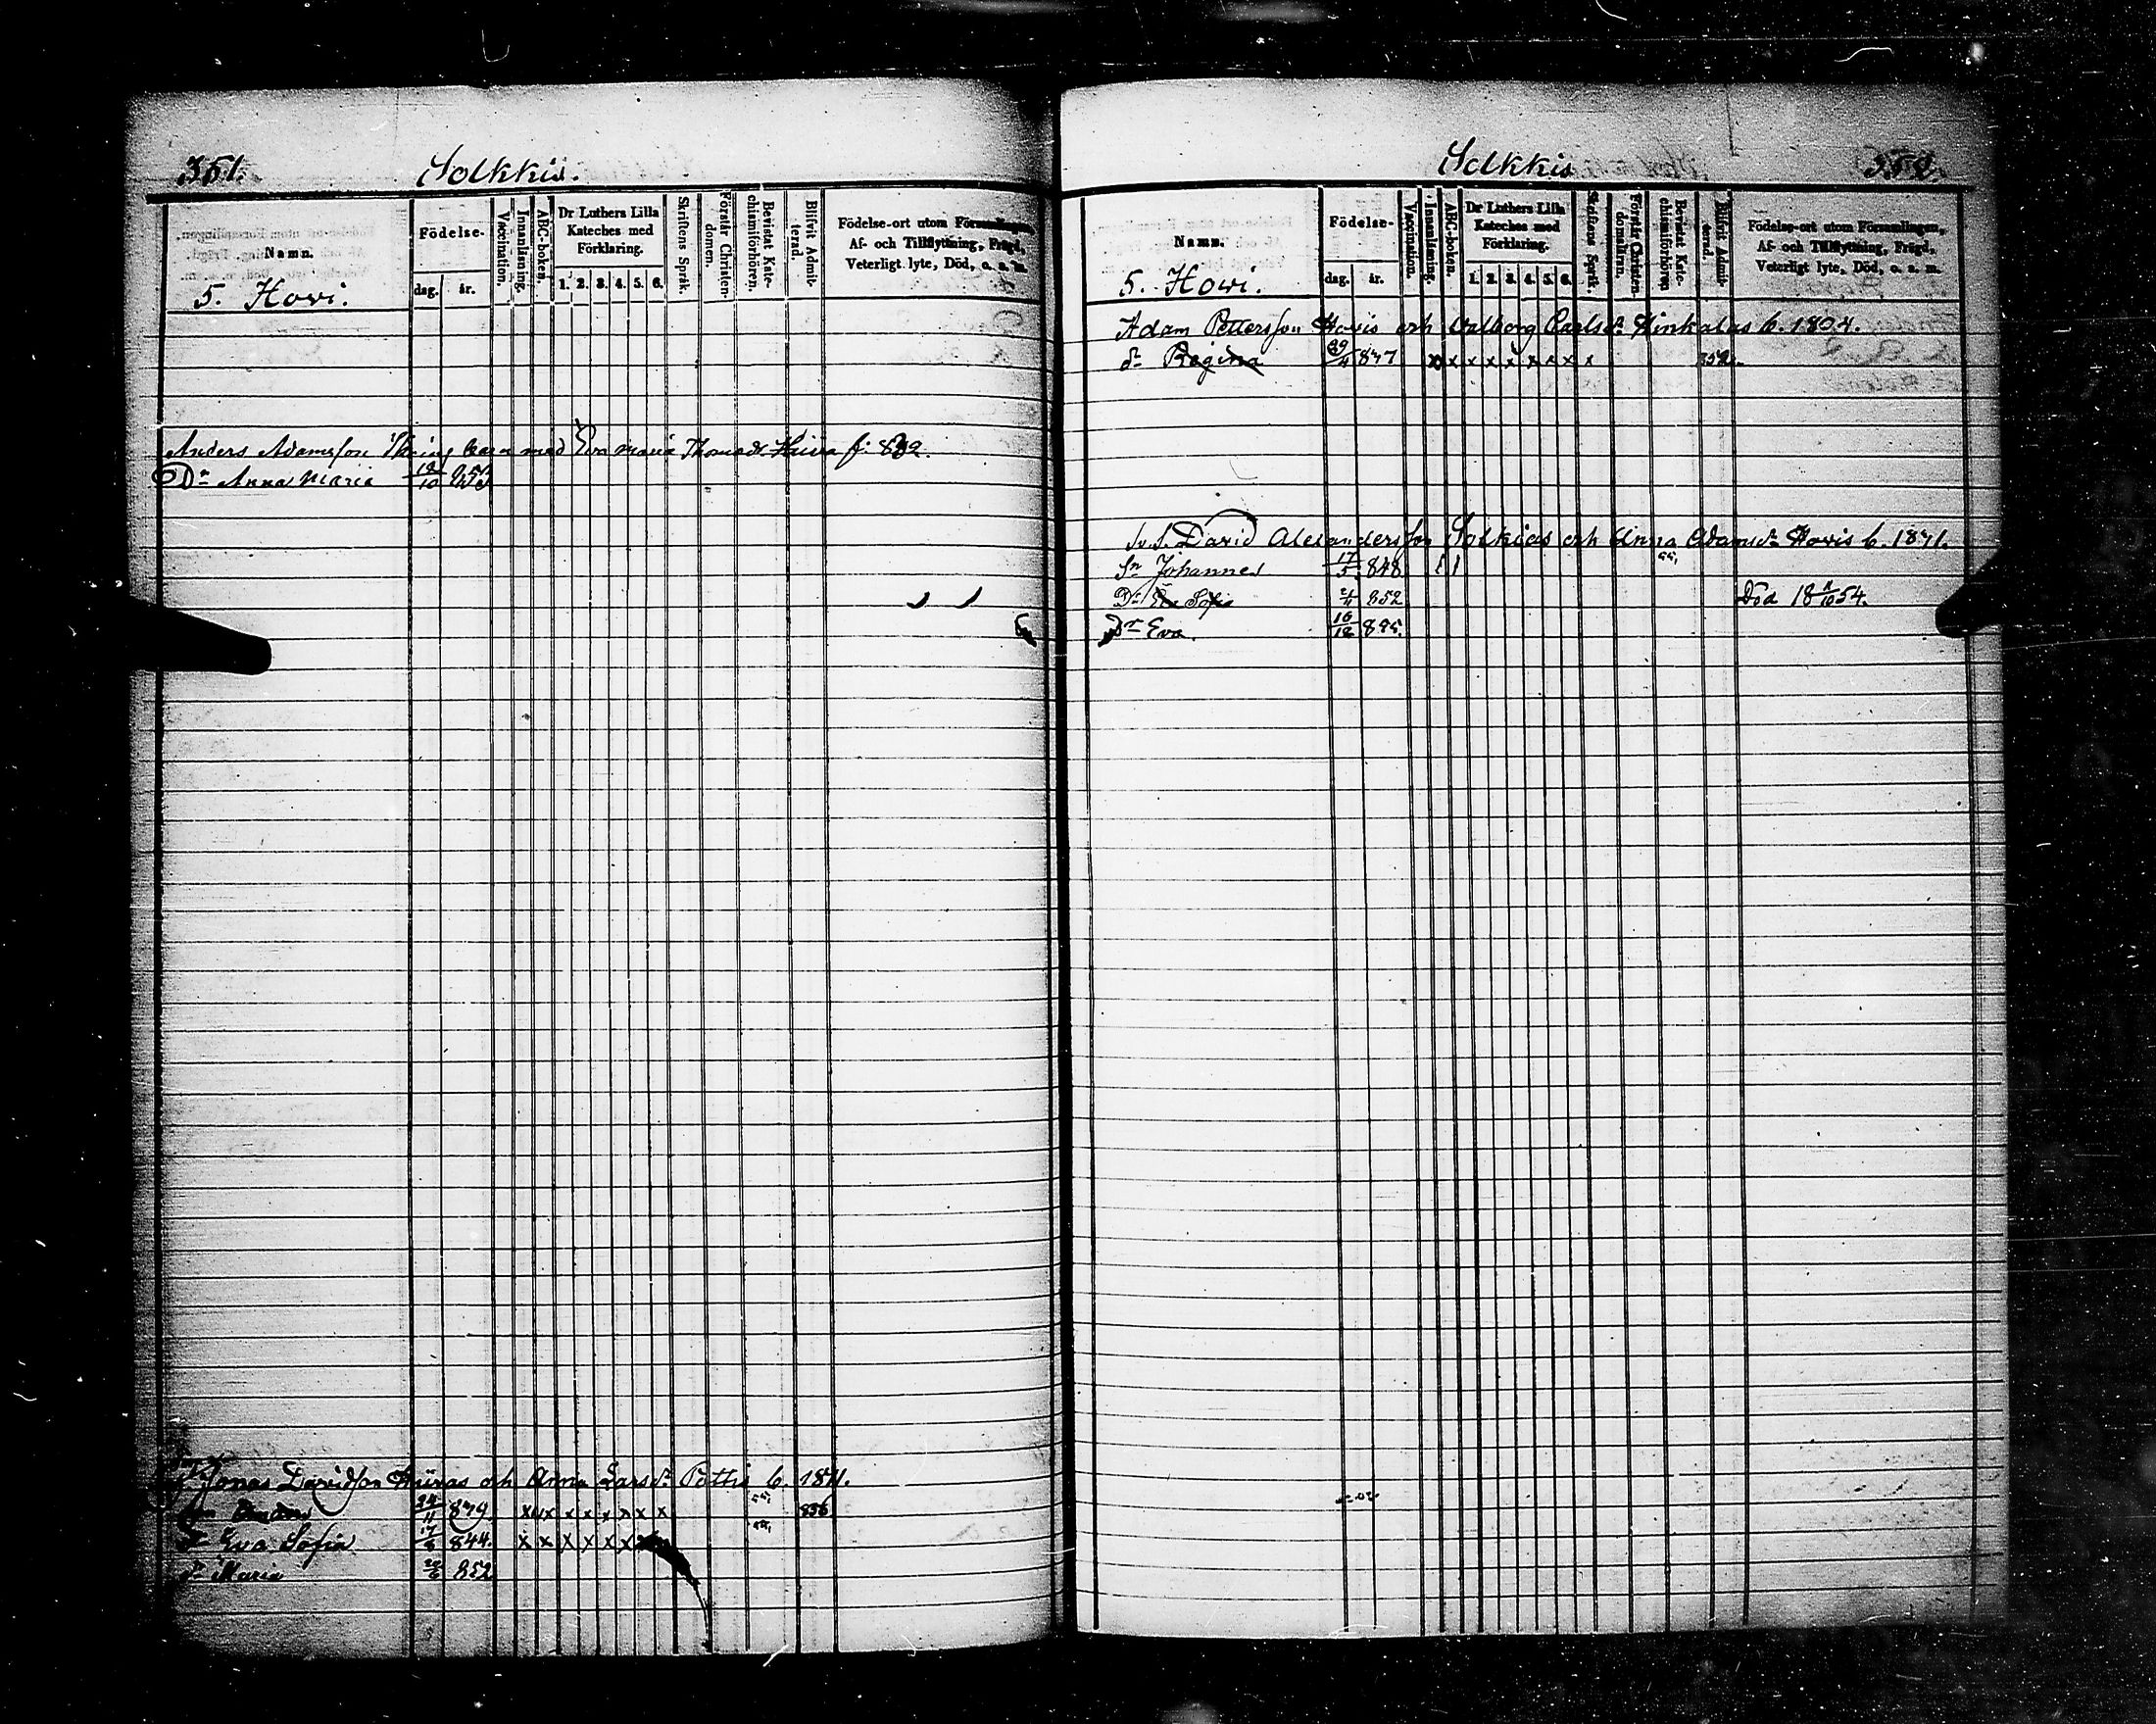 351.
Solkkis.
Namn.
Födelse-
dag.
år.
Vaccination.
Innanläsning.
ABC-boken.
Dr Luthers Lilla
Kateches med
Förklaring.
1. 2. 3. 4. 5. 6.
Skriftens Språk.
Förstår Christen-
domen.
Bevistat Kate-
chismiförhören.
Blifvit Admit-
terad.
Födelse-ort utom Församlingen,
Af- och Tillflyttning, Frägd,
Veterligt lyte, Död, o. s. m.
5. Howi.
Anders Adamsson med Eva Maria Thomasdr
Dr Anna Maria 12/10 853
Jonas Davidson och Anna Larsdr Pottis
24/4 x x x x x x x x 856
dr Eva Sofia 844. x x x x x x
dr Maria 852
Solkkis
352.
Namn.
Födelse-
dag.
år.
Vaccination.
Innanläsning.
ABC-boken.
Dr Luthers Lilla
Kateches med
Förklaring.
1. 2. 3. 4. 5. 6.
Skriftens Språk.
Förstår Christen-
domsläran.
Bevistat Kate-
chismiförhören.
Blifvit Admit-
terad.
Födelse-ort utom Församlingen,
Af- och Tillflyttning, Frägd,
Veterligt lyte, Död, o. s. m.
5. Howi.
Adam Pettersson Howis och Valborg Carlsdr Hinkalas b. 1804.
dr Regina 29/4 x x x x x x x x x 852.
David Alexandersson Solkkis och Anna Adamsdr Howis b.
Sn Johannes 17/5 848
Dr Sofia 852 Död 18 54.
Dr Eva. 16/12 855.